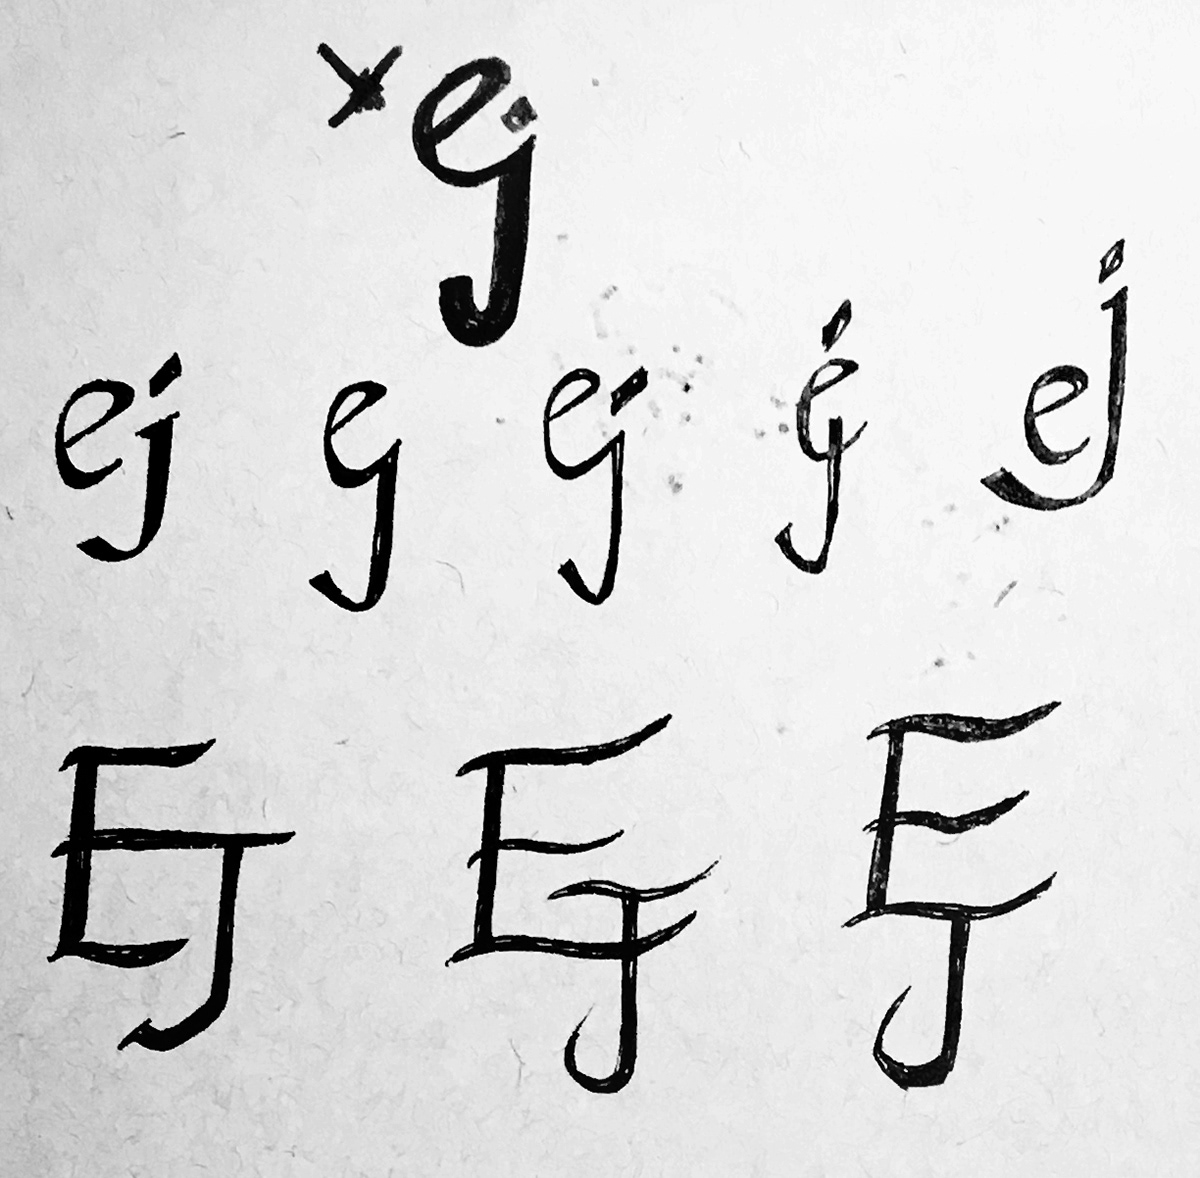 × ej
ej ej ej ej ej
EJ EJ EJ